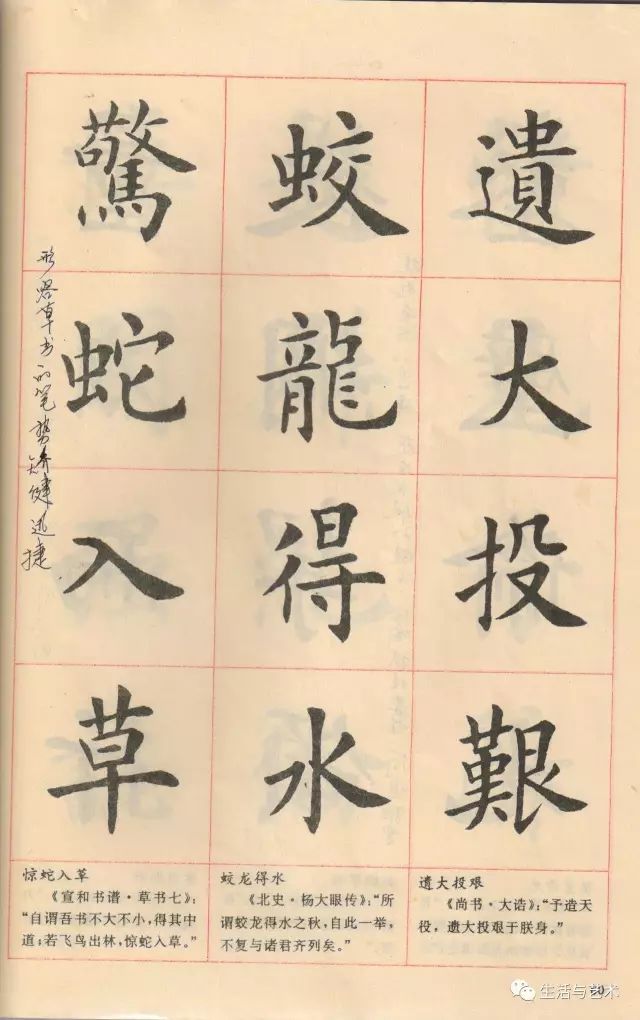 遺大投艱
蛟龍得水
驚蛇入草
形容草书的笔势矫健迅捷
惊蛇入草
《宣和书谱·草书七》:
“自谓吾书不大不小,得其中
道;若飞鸟出林,惊蛇入草。”
蛟龙得水
《北史·杨大眼传》:“所
谓蛟龙得水之秋,自此一举,
不复与诸君齐列矣。”
遗大投艰
《尚书·大诰》:“予造天
役,遗大投艰于朕身。”
生活与艺术